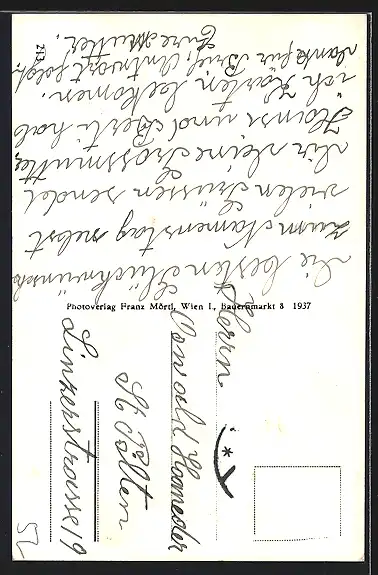 Die besten Glückwünsche
zum Namenstag nebst
vielen Grüssen sendet
Dir deine Grossmutter,
Hansi und Berti hab
ich Karten bekomen.
Danke für Brief, Antwort folgt.
Eure Mutter.
213
Photoverlag Franz Mörtl, Wien I., Bauernmarkt 8 1937
Herrn
Oswald Hameder
St Pölten
Linzerstrasse 19